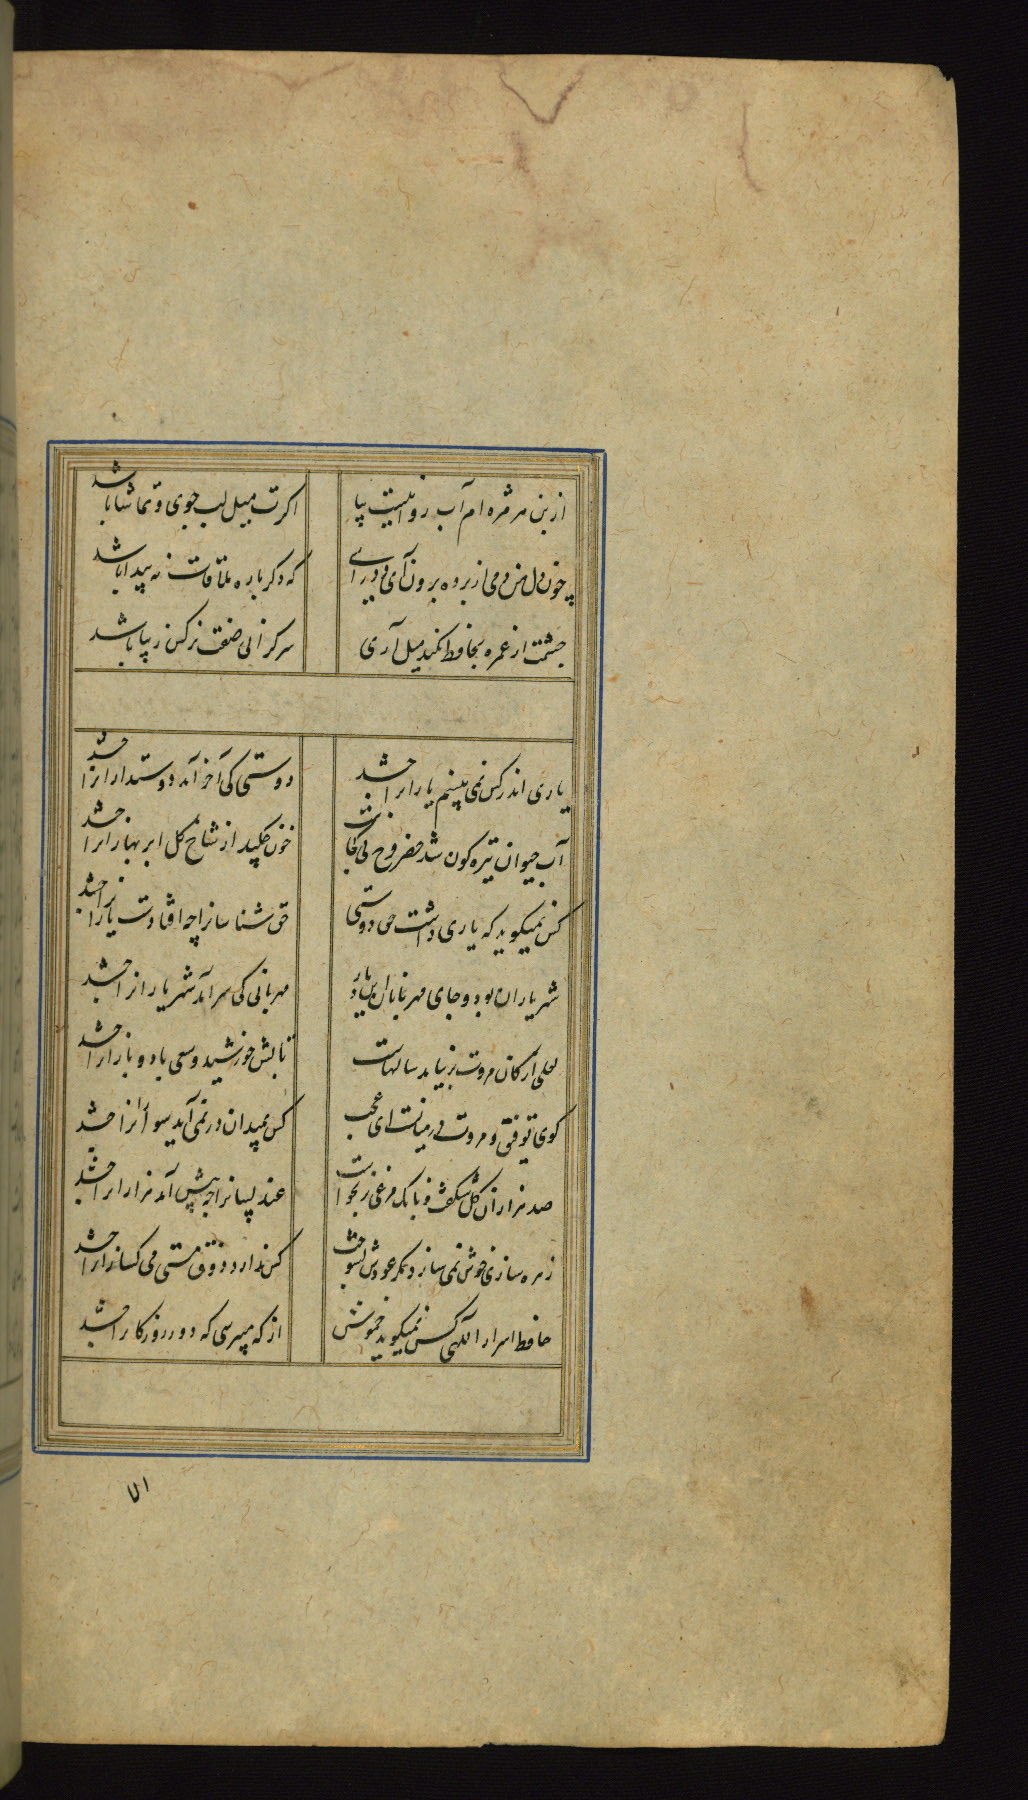 از بن هر مژه ام آب روانست بیا اکرت میل لب جوی و تماشا باشد
چون دل من دمی از پرده برون آی و درای که دکر باره ملاقات نه پیدا باشد
چشمت از غمزه بحافظ نکند میل آری سرکرانی صفت نرکس زیبا باشد
یاری اندر کس نمی بینم یارانرا چه شد دوستی کی آخر آمد دوستدارانرا چه شد
آب حیوان تیره کون شد خضر فرخ پی کجاست خون چکید از شاخ کل ابر بهارانرا چه شد
کس نمیکوید که یاری داشت حق دوستی حق شناسانرا چه افتادست یارانرا چه شد
شهر یاران بود و جای مهربانان این دیار مهربانی کی سرآمد شهریارانرا چه شد
لعلی از کان مروت بر نیاید سالهاست تابش خورشید و سعی باد و بارانرا چه شد
کوی توفیق و مروت در میانست ای عجب کس بمیدان در نمی آید سوارانرا چه شد
صد هزاران کل شکفت و بانک مرغی بر نخواست عندلیبانرا چه پیش آمد هزارانرا چه شد
زهره سازی خوش نمی سازد مکر عودش بسوخت کس ندارد ذوق مستی می کسارانرا چه شد
حافظ اسرار الهی کس نمیکوید خموش از که میپرسی که دور روزکارانرا چه شد
۷۱